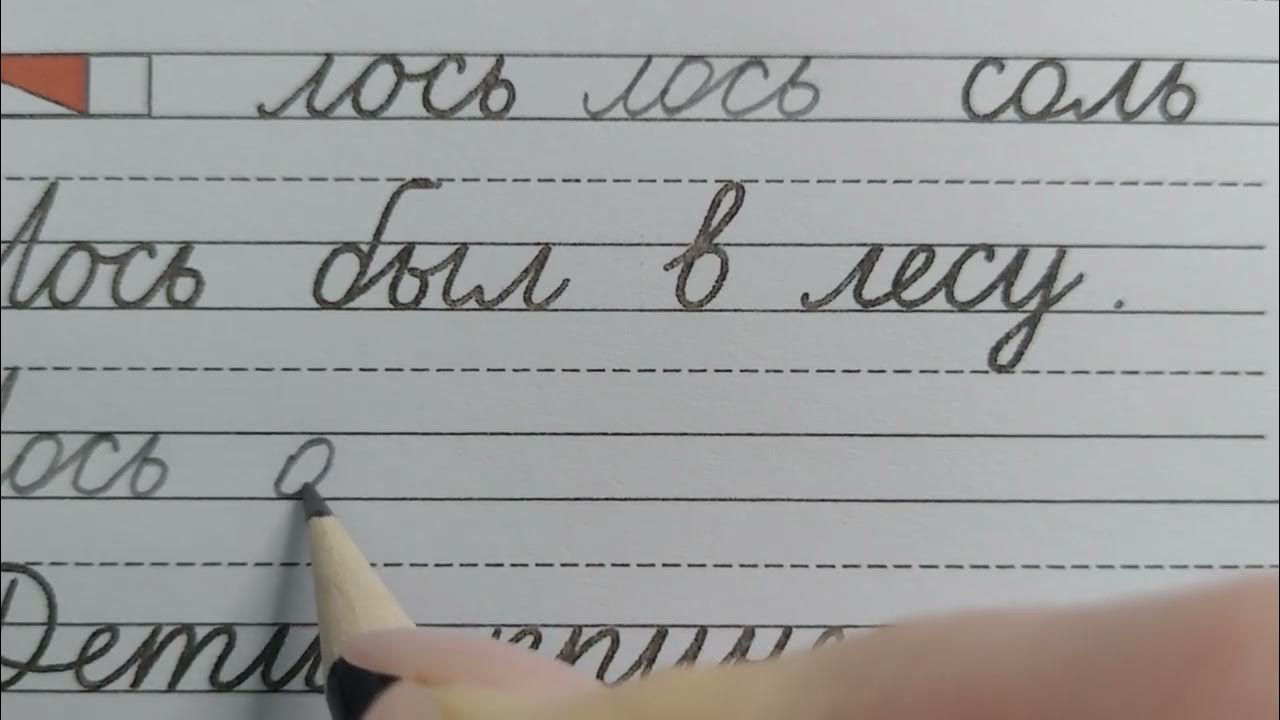 лось лось соль
Лось был в лесу.
Лось
Дети